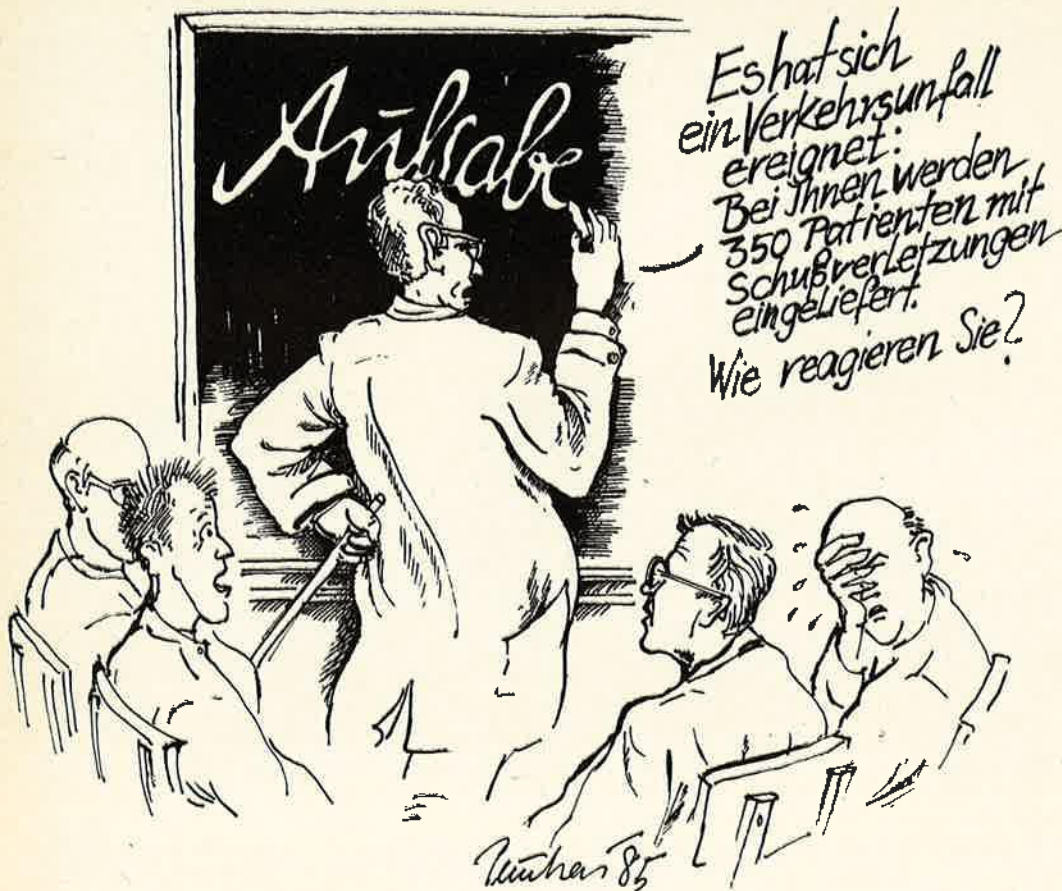 Aufgabe
Es hat sich
ein Verkehrsunfall
ereignet:
Bei Ihnen werden
350 Patienten mit
Schußverletzungen
eingeliefert.
Wie reagieren Sie?
'85